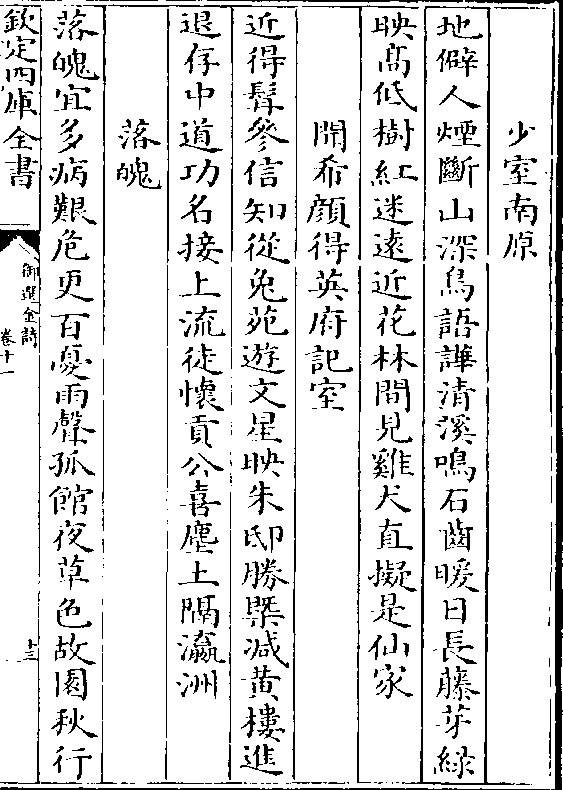 少室南原
地僻人煙斷山深鳥語譁清溪鳴石齒暖日長藤芽緑
映髙低樹紅迷遠近花林間見雞犬直擬是仙家
聞希顔得英府記室
近得髯參信知從兔苑遊文星映朱邸勝槩减黄樓進
退存中道功名接上流徒懷貢公喜塵土隔瀛洲
落魄
落魄宜多病艱危更百憂雨聲孤館夜草色故園秋行
欽定四庫全書
御選金詩
卷十一
十三